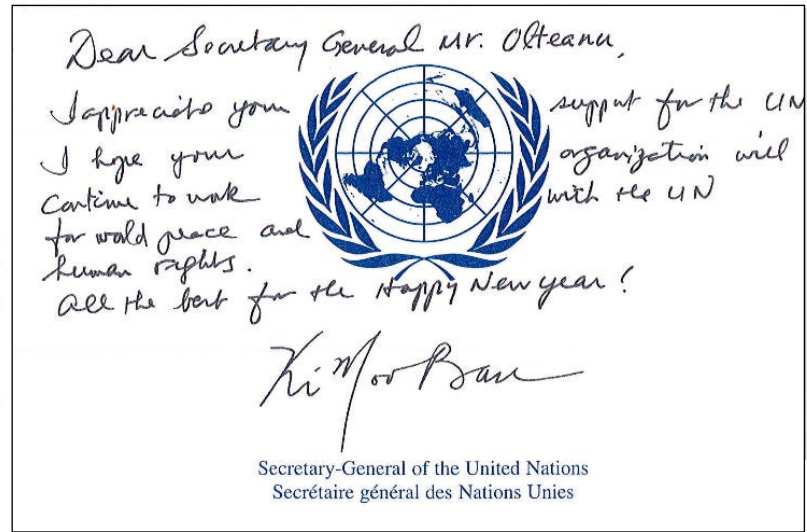 Dear Secretary General Mr. Olteanu,
I appreciate your support for the UN
I hope your organization will
continue to work with the UN
for world peace and
human rights.
All the best for the Happy New year!
Ki Moo Ban
Secretary-General of the United Nations
Secrétaire général des Nations Unies